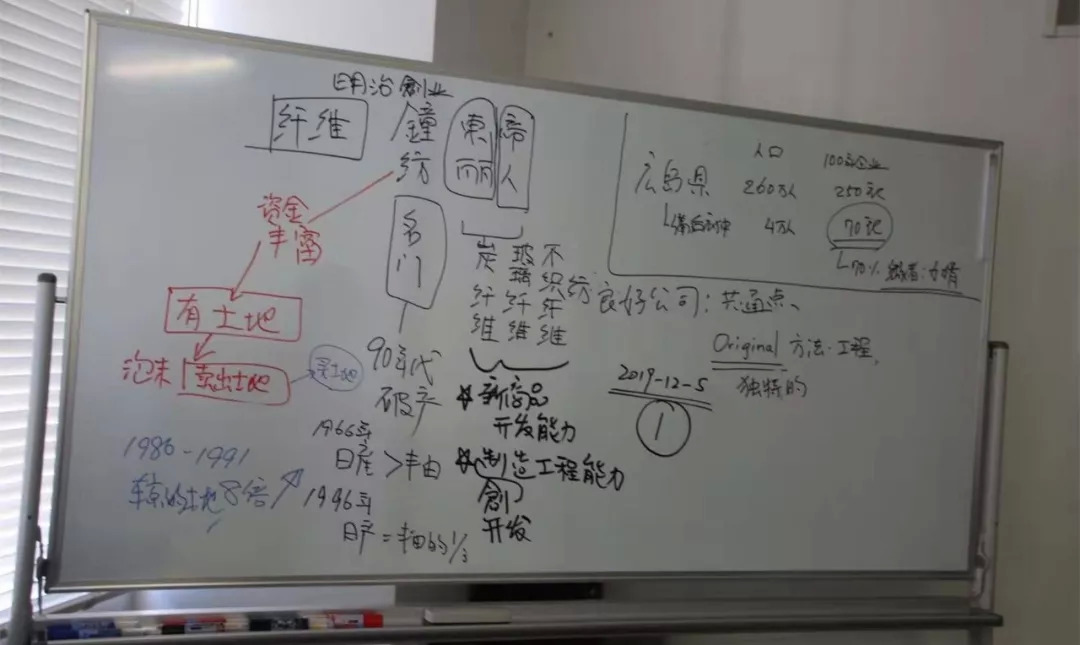 明治創业
纤维
鐘纺
東丽
帝人
资金
丰富
名门
有土地
泡末
卖出土地
买土地
90年代
破产
炭纤维
玻璃纤维
不织纺纤维
★新商品
开发能力
★制造工程能力
創
开发
1966年
日産>丰田
1996年
日产=丰田的1/3
1986-1991
东京的土地8倍
人口
100年企业
広島県
260万人
250社
4万人
70社
70%
良好公司:共通点、
Original 方法·工程,
独特的
2019-12-5
1